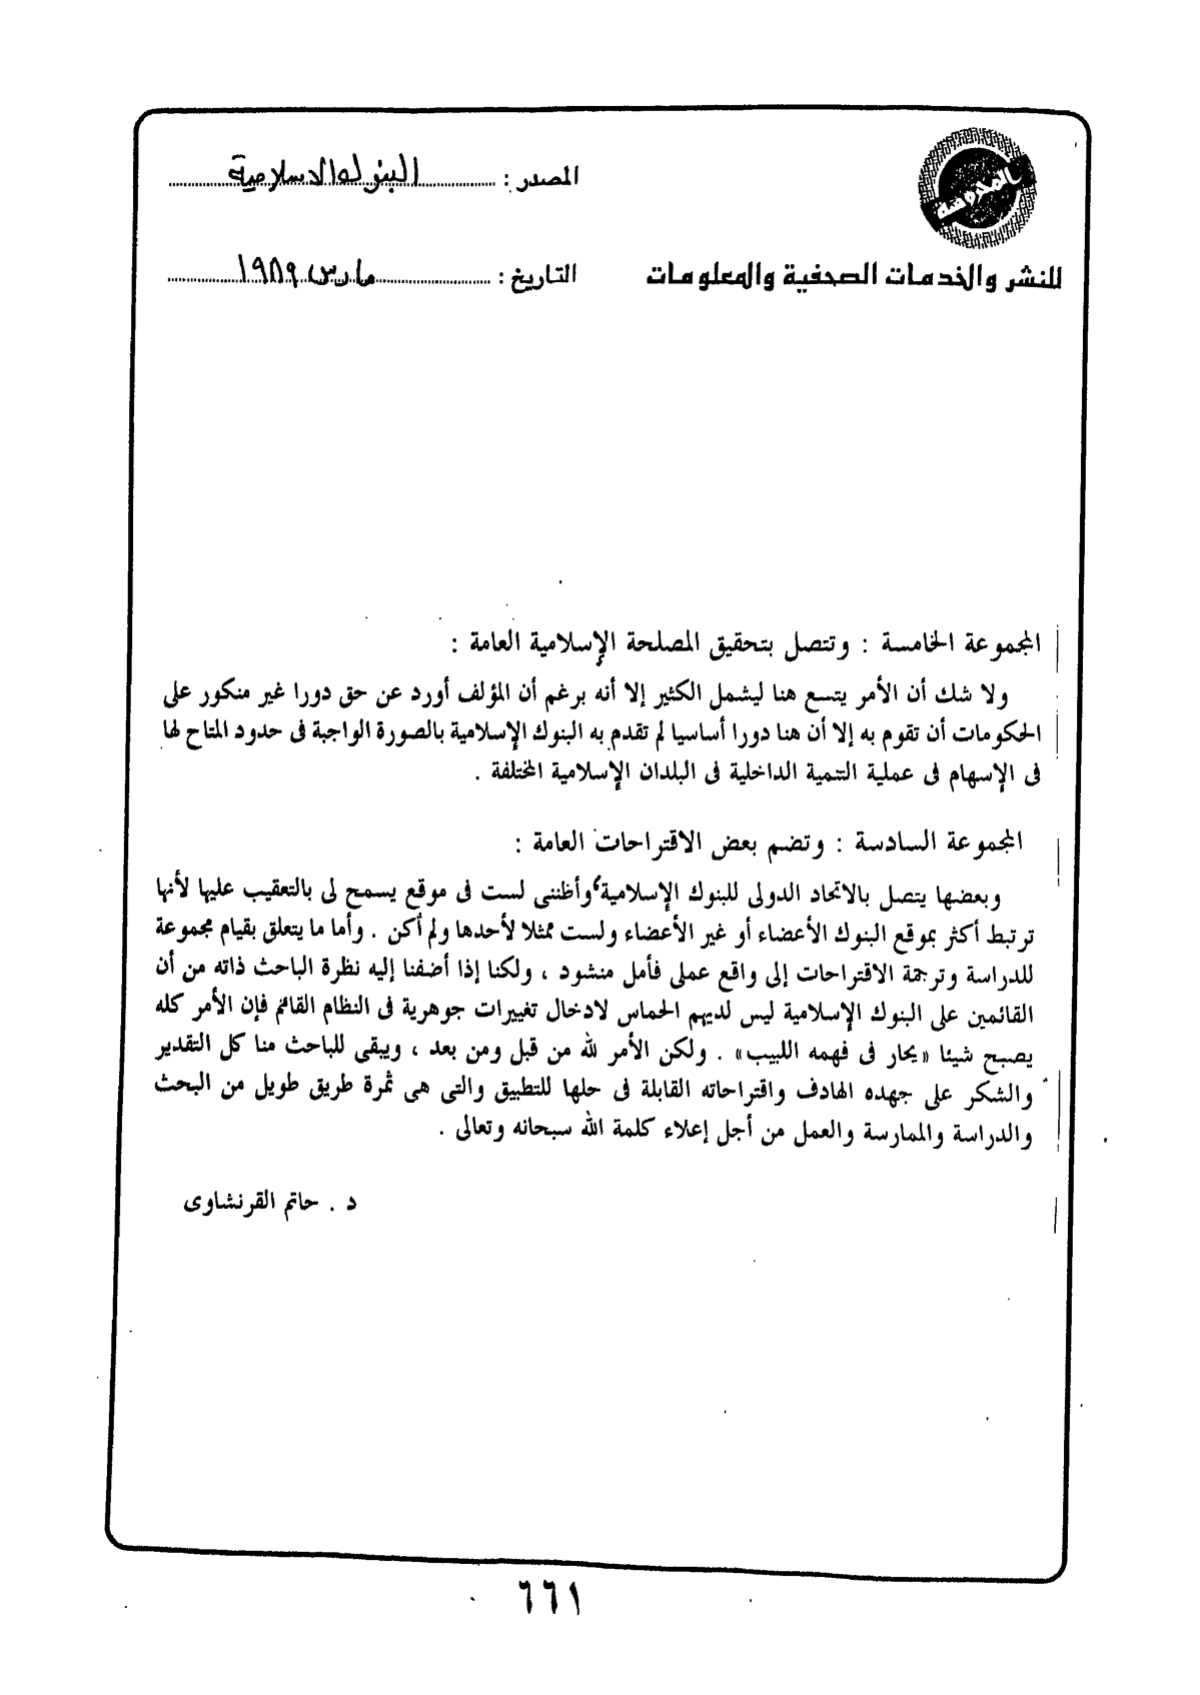 المصدر : البنوك الاسلامية
للنشر والخدمات الصحفية والمعلومات
التاريخ : مارس ١٩٨٩
المجموعة الخامسة : وتتصل بتحقيق المصلحة الإسلامية العامة :
ولا شك أن الأمر يتسع هنا ليشمل الكثير إلا أنه برغم أن المؤلف أورد عن حق دورا غير منكور على
الحكومات أن تقوم به إلا أن هنا دورا أساسيا لم تقدم به البنوك الإسلامية بالصورة الواجبة فى حدود المتاح لها
فى الإسهام فى عملية التنمية الداخلية فى البلدان الإسلامية المختلفة .
المجموعة السادسة : وتضم بعض الاقتراحات العامة :
وبعضها يتصل بالاتحاد الدولى للبنوك الإسلامية، وأظننى لست فى موقع يسمح لى بالتعقيب عليها لأنها
ترتبط أكثر بموقع البنوك الأعضاء أو غير الأعضاء ولست ممثلا لأحدها ولم أكن . وأما ما يتعلق بقيام مجموعة
للدراسة وترجمة الاقتراحات إلى واقع عملى فأمل منشود ، ولكنا إذا أضفنا إليه نظرة الباحث ذاته من أن
القائمين على البنوك الإسلامية ليس لديهم الحماس لادخال تغييرات جوهرية فى النظام القائم فإن الأمر كله
يصبح شيئا «يحار فى فهمه اللبيب» . ولكن الأمر لله من قبل ومن بعد ، ويبقى للباحث منا كل التقدير
والشكر على جهده الهادف واقتراحاته القابلة فى حلها للتطبيق والتى هى ثمرة طريق طويل من البحث
والدراسة والممارسة والعمل من أجل إعلاء كلمة الله سبحانه وتعالى .
د . حاتم القرنشاوى
٦٦١